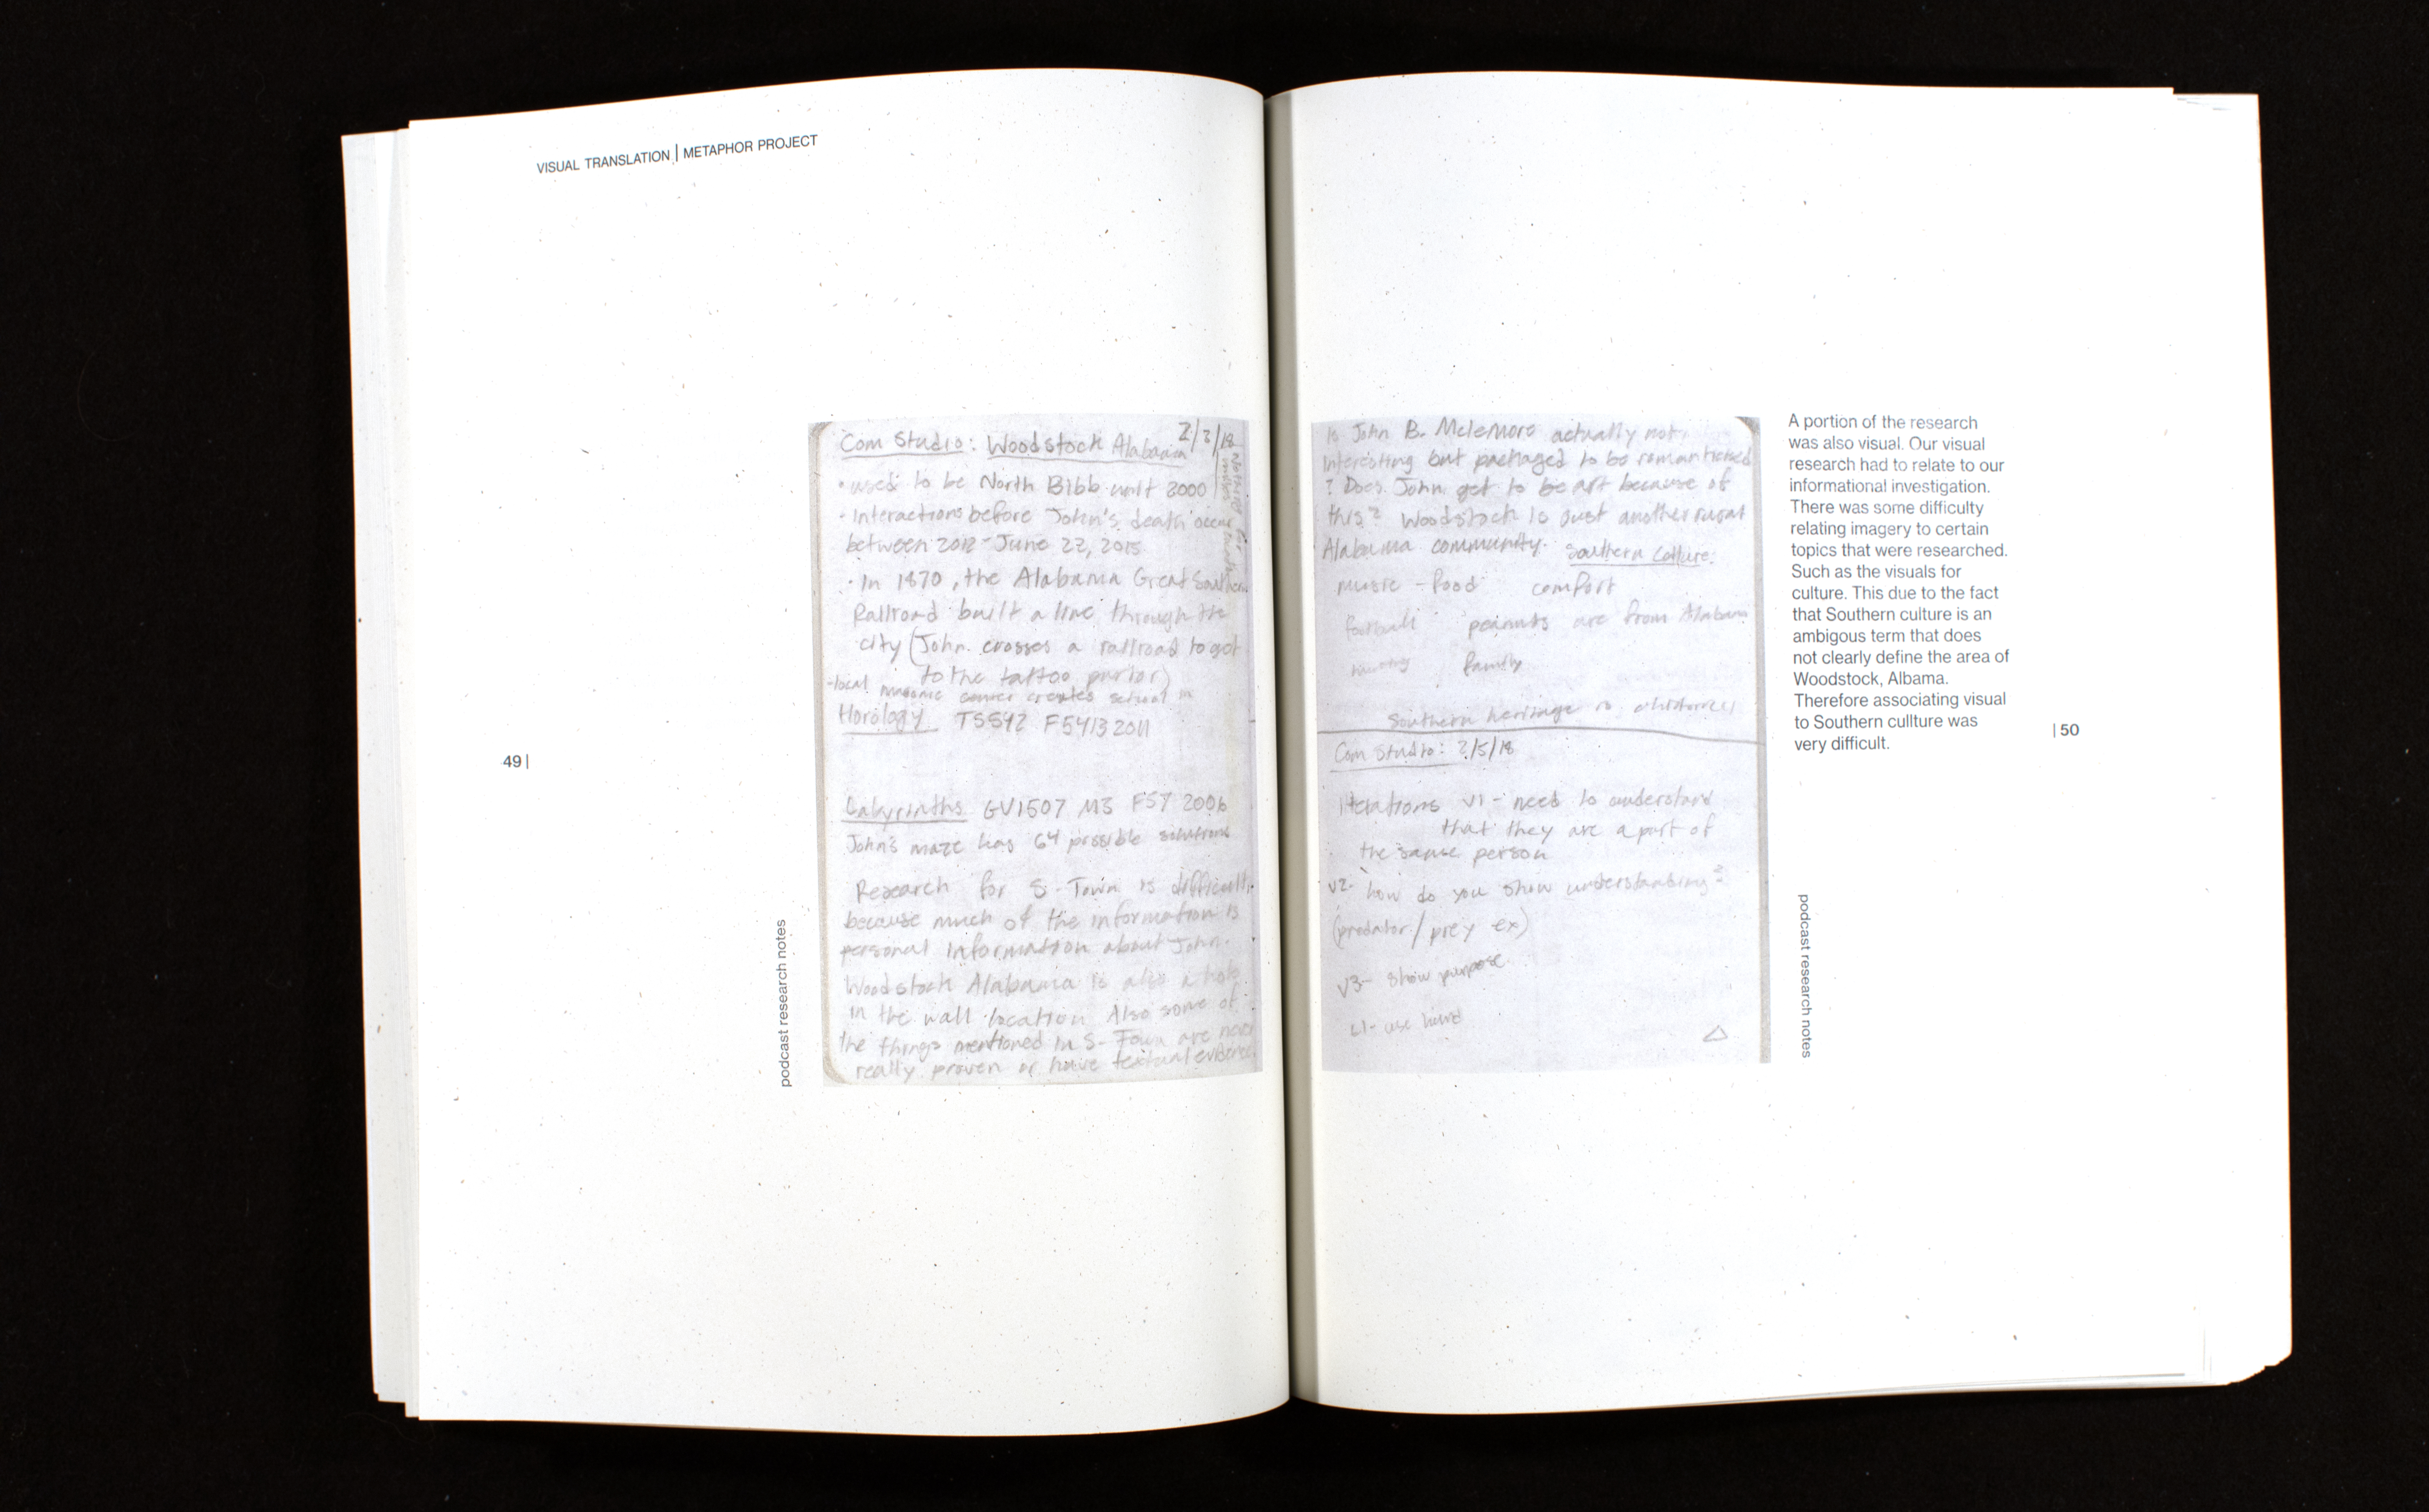 VISUAL TRANSLATION | METAPHOR PROJECT
Com Studio: Woodstock Alabama 2/3/18
• used to be North Bibb until 2000
• Interactions before John's death occur
between 2012 - June 22, 2015
• In 1870, the Alabama Great Southern
Railroad built a line through the
city (John crosses a railroad to get
to the tattoo parlor)
-local masonic creates school in
Horology TS542 F5413 2011
Labyrinths GV1507 M3 F57 2006
John's maze has 64 possible solutions
Research for S-Town is difficult
because much of the information is
personal information about John.
Woodstock Alabama is also a hole
in the wall location Also some of
the things mentioned in S-Town are never
really proven or have textual evidence
podcast research notes
49 |
Is John B. Mclemore actually not
interesting but packaged to be romanticised
? Does John get to be art because of
this? Woodstock is just another rural
Alabama community. Southern Culture:
music - food comfort
football peanuts are from Alabama
hunting family
Southern heritage is
Com Studio: 2/5/18
Iterations V1 - need to understand
that they are a part of
the same person
V2- how do you show understanding?
(predator / prey ex)
V3- show purpose
use hand
A portion of the research
was also visual. Our visual
research had to relate to our
informational investigation.
There was some difficulty
relating imagery to certain
topics that were researched.
Such as the visuals for
culture. This due to the fact
that Southern culture is an
ambigous term that does
not clearly define the area of
Woodstock, Albama.
Therefore associating visual
to Southern cullture was
very difficult.
| 50
podcast research notes